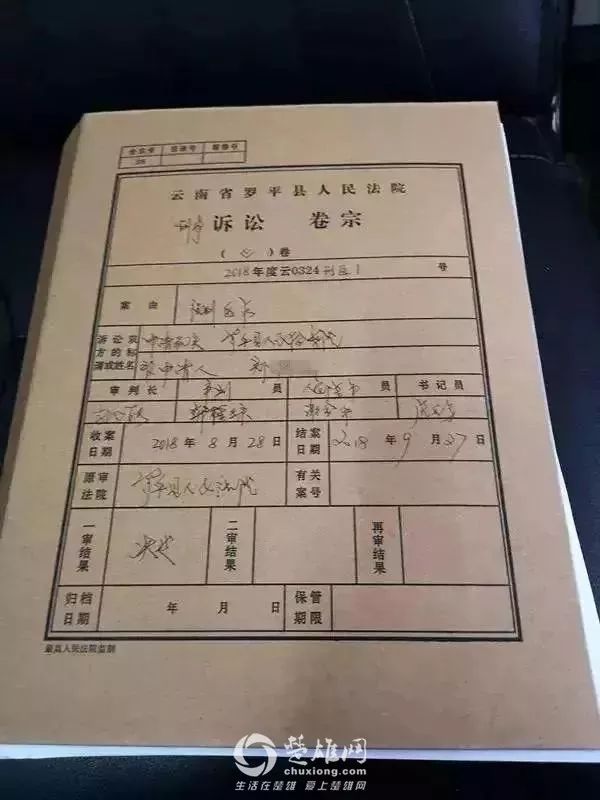 全宗号 目录号 案卷号
25
云南省罗平县人民法院
刑事 诉讼 卷宗
( 正 )卷
2018年度云0324刑医1号
案由 强制医疗
诉讼双方的称谓或姓名 申请机关 罗平县人民检察院
被申请人
审判长 审判员 人民陪审员 书记员
收案日期 2018年8月28日 结案日期 2018年9月27日
原审法院 罗平县人民法院 有关案号
一审结果 决定 二审结果 再审结果
归档日期 年 月 日 保管期限
最高人民法院监制
楚雄网
chuxiong.com
生活在楚雄 爱上楚雄网